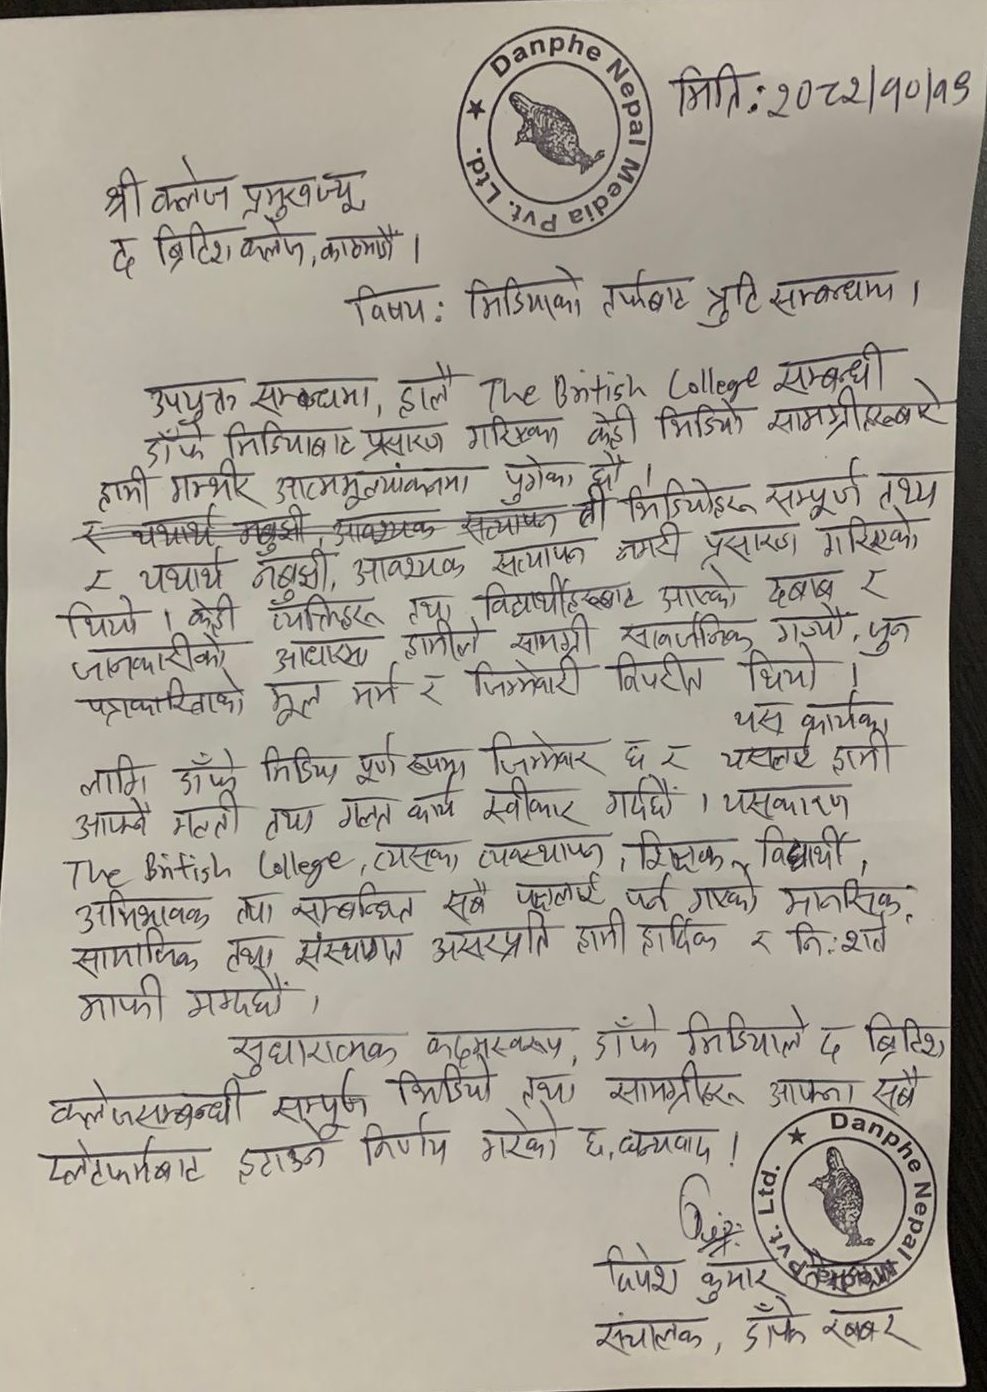 Danphe Nepal Media Pvt. Ltd.
मिति: २०८२/१०/१९
श्री कलेज प्रमुखज्यू
द ब्रिटिश कलेज, काठमाडौं ।
विषय: मिडियाको तर्फबाट त्रुटि सम्बन्धमा ।
उपर्युक्त सम्बन्धमा, हालै The British College सम्बन्धी
डाँफे मिडियाबाट प्रसारण गरिएका केही भिडियो सामग्रीहरूबारे
हामी गम्भीर आत्ममूल्यांकनमा पुगेका छौं ।
र यथार्थ नबुझी, आवश्यक सत्यापन ती भिडियोहरू सम्पूर्ण तथ्य
र यथार्थ नबुझी, आवश्यक सत्यापन नगरी प्रसारण गरिएको
थियो । केही व्यक्तिहरू तथा विद्यार्थीहरूबाट आएको दबाब र
जानकारीको आधारमा हामीले सामग्री सार्वजनिक गर्‍यौं, जुन
पत्रकारिताको मूल मर्म र जिम्मेवारी विपरीत थियो ।
यस कार्यका
लागि डाँफे मिडिया पूर्ण रूपमा जिम्मेवार छ र यसलाई हामी
आफ्नै गल्ती तथा गलत कार्य स्वीकार गर्दछौं । यसकारण
The British College, त्यसका व्यवस्थापन, शिक्षक, विद्यार्थी,
अभिभावक तथा सम्बन्धित सबै पक्षलाई पर्न गएको मानसिक,
सामाजिक तथा संस्थागत असरप्रति हामी हार्दिक र नि:शर्त
माफी माग्दछौं ।
सुधारात्मक कदमस्वरूप, डाँफे मिडियाले द ब्रिटिश
कलेजसम्बन्धी सम्पूर्ण भिडियो तथा सामग्रीहरू आफ्ना सबै
प्लेटफर्मबाट हटाउने निर्णय गरेको छ, धन्यवाद !
Danphe Nepal Pvt. Ltd.
दिपेश कुमार
संचालक, डाँफे खबर